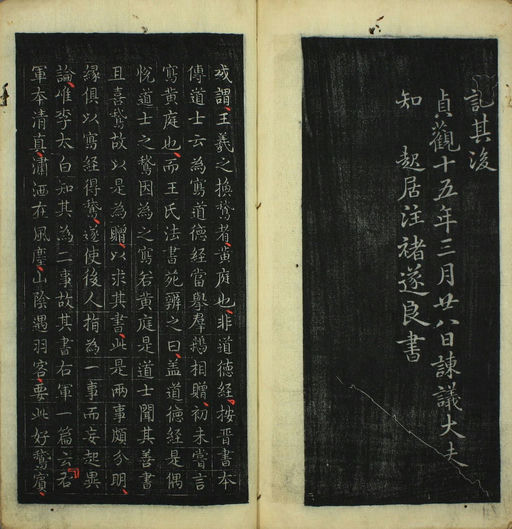 記其後
貞觀十五年三月廿八日諫議大夫
知 起居注褚遂良書
或謂王羲之換鵞者黃庭也非道德經按晉書本
傳道士云為寫道德經當舉羣鵝相贈初未嘗言
寫黃庭也而王氏法書苑辨之曰蓋道德經是偶
悅道士之鵞因為之寫若黃庭是道士聞其善書
且喜鵞故以是為贈以求其書此是兩事頗分明
緣俱以寫經得鵞遂使後人指為一事而妄起異
論惟李太白知其為二事故其書右軍一篇云右
軍本清真瀟洒在風塵山陰遇羽客要此好鵞賓